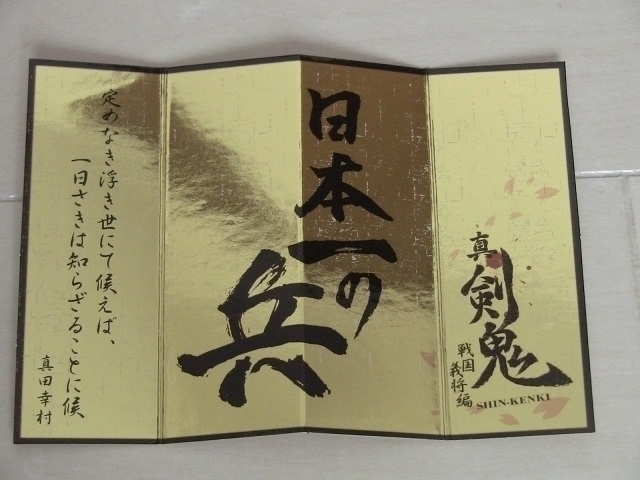 真
剣鬼
戦国
義将編
SHIN-KENKI
日本一の
兵
定めなき浮き世にて候えば、
一日さきは知らざることに候
真田幸村